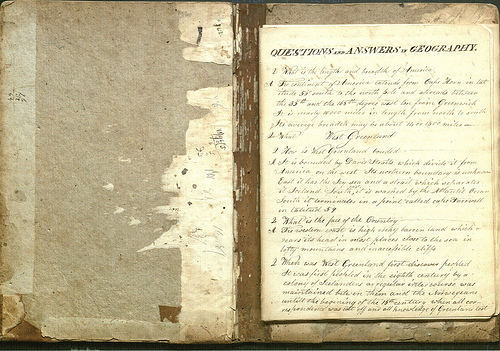 QUESTIONS AND ANSWERS IN GEOGRAPHY.
Q What is the length and breadth of America
A The continent of America extends from Cape Horn in lat
itude 55° south to the north pole and spreads between
the 35th and the 168th degree west lon from Greenwich
It is nearly 9000 miles in length from north to south
Its average breadth may be about 14 or 1500 miles
Q What West Greenland
Q How is West Greenland bounded
A It is bounded by Davis Straits which divide it from
America on the west Its northern boundary is unknown
East it has the Icy sea and a strait which separates
it Iceland South it is washed by the Atlantic Ocean
South it terminates in a point called cape Farewell
in latitude 59
Q What is the face of the Country
A The western coast is high rocky barren land which
rears its head in most places close to the sea in
lofty mountains and inaccessible cliffs
Q When was West Greenland first discover peopled
It was first peopled in the eighth century by a
colony of Icelanders a regular intercourse was
maintained between them and the Norwegians
untill the beginning of the 15th century when all cor-
respondence was cut off and all knowledge of Greenland lost